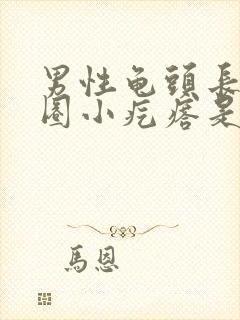 男性龟頭長
圈小疙瘩是
馬恩